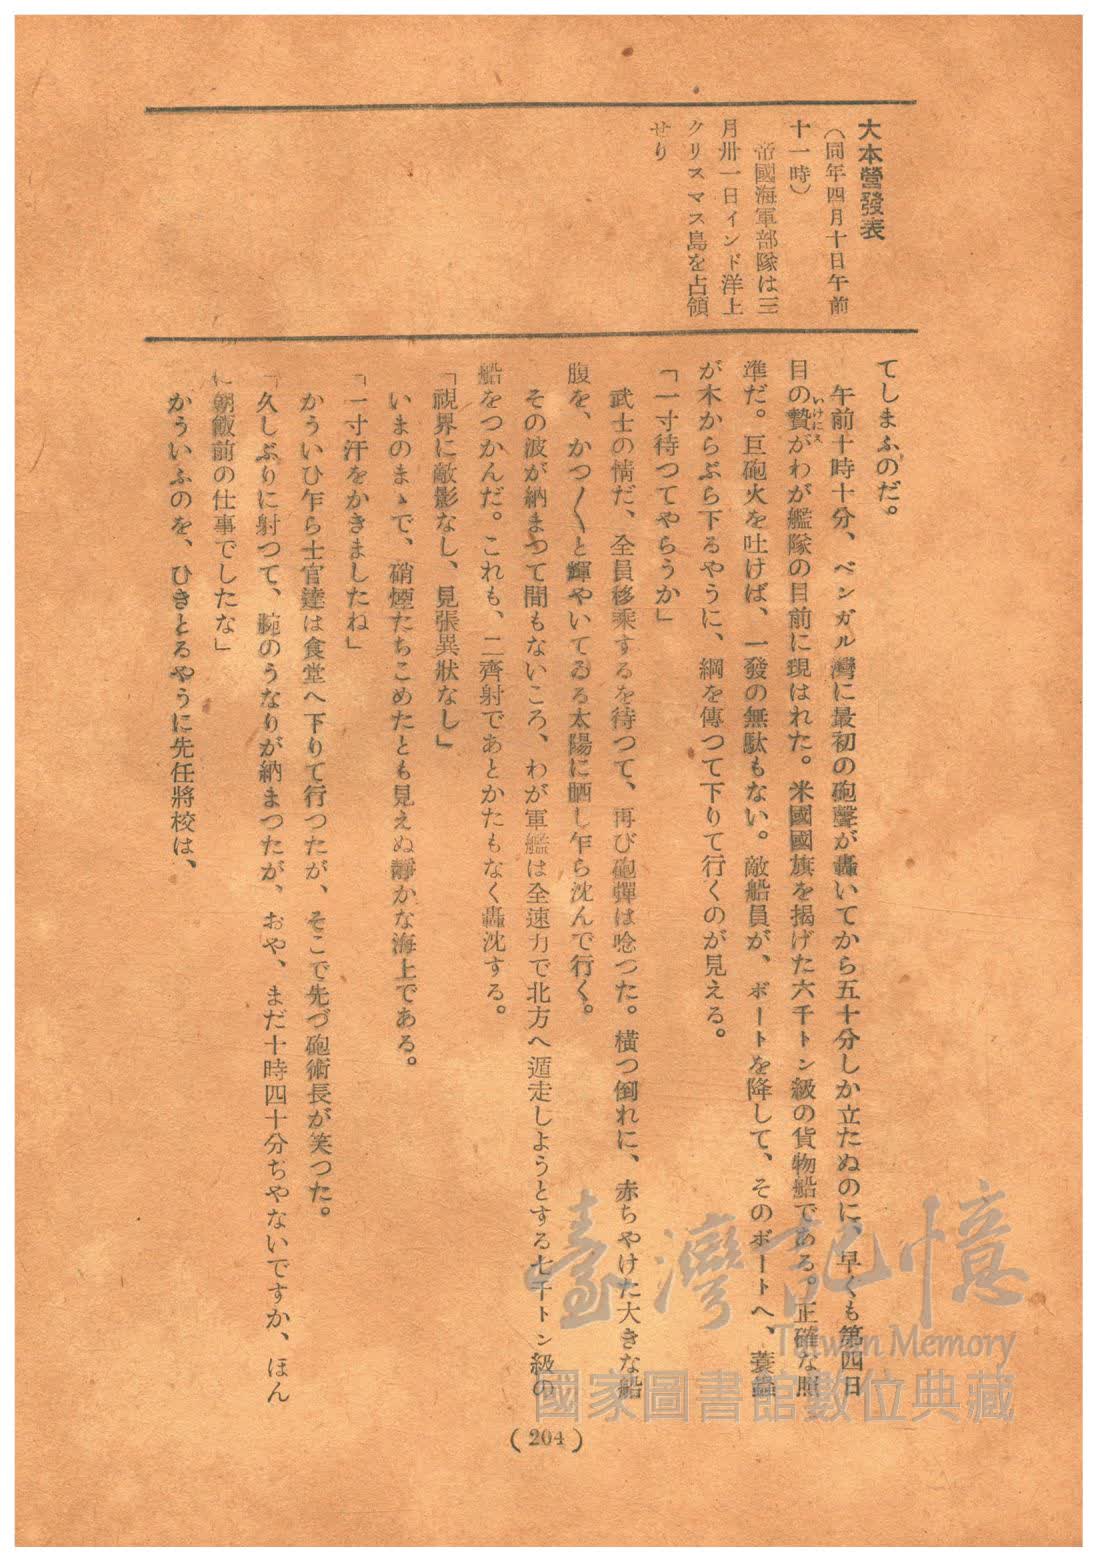 大本營發表
（同年四月十日午前
十一時）
帝國海軍部隊は三
月卅一日インド洋上
クリスマス島を占領
せり
てしまふのだ。
午前十時十分、ベンガル灣に最初の砲聲が轟いてから五十分しか立たぬのに、早くも第四日
目の贄がわが艦隊の目前に現はれた。米國國旗を揭げた六千トン級の貨物船である。正確な照
いけにえ
準だ。巨砲火を吐けば、一發の無駄もない。敵船員が、ボートを降して、そのボートへ、蓑蟲
が木からぶら下るやうに、綱を傳つて下りて行くのが見える。
「一寸待つてやらうか」
武士の情だ、全員移乘するを待つて、再び砲彈は唸つた。橫つ倒れに、赤ちやけた大きな船
腹を、かつ〱と輝やいてゐる太陽に晒し乍ら沈んで行く。
その波が納まつて間もないころ、わが軍艦は全速力で北方へ遁走しようとする七千トン級の
船をつかんだ。これも、二齊射であとかたもなく轟沈する。
「視界に敵影なし、見張異狀なし」
いまのまゝで、硝煙たちこめたとも見えぬ靜かな海上である。
「一寸汗をかきましたね」
かういひ乍ら士官達は食堂へ下りて行つたが、そこで先づ砲術長が笑つた。
「久しぶりに射つて、腕のうなりが納まつたが、おや、まだ十時四十分ぢやないですか、ほん
に朝飯前の仕事でしたな」
かういふのを、ひきとるやうに先任將校は、
(204)
臺灣記憶
Taiwan Memory
國家圖書館數位典藏